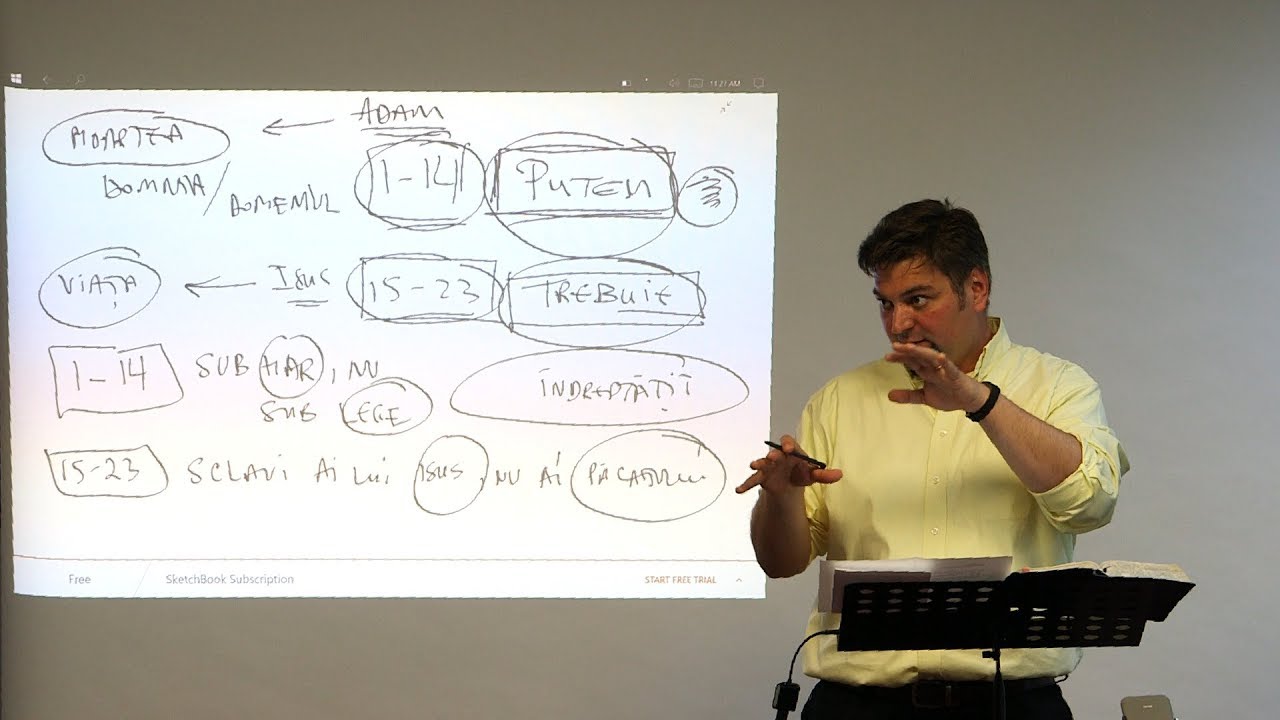 11:27 AM
MOARTEA ← ADAM
DOMNIA / DOMENIUL 1-14 PUTEM
VIAȚA ← ISUS 15-23 TREBUIE
1-14 SUB HAR, NU
SUB LEGE ÎNDREPTĂȚIȚI
15-23 SCLAVI AI LUI ISUS, NU AI PĂCATULUI
Free SketchBook Subscription START FREE TRIAL